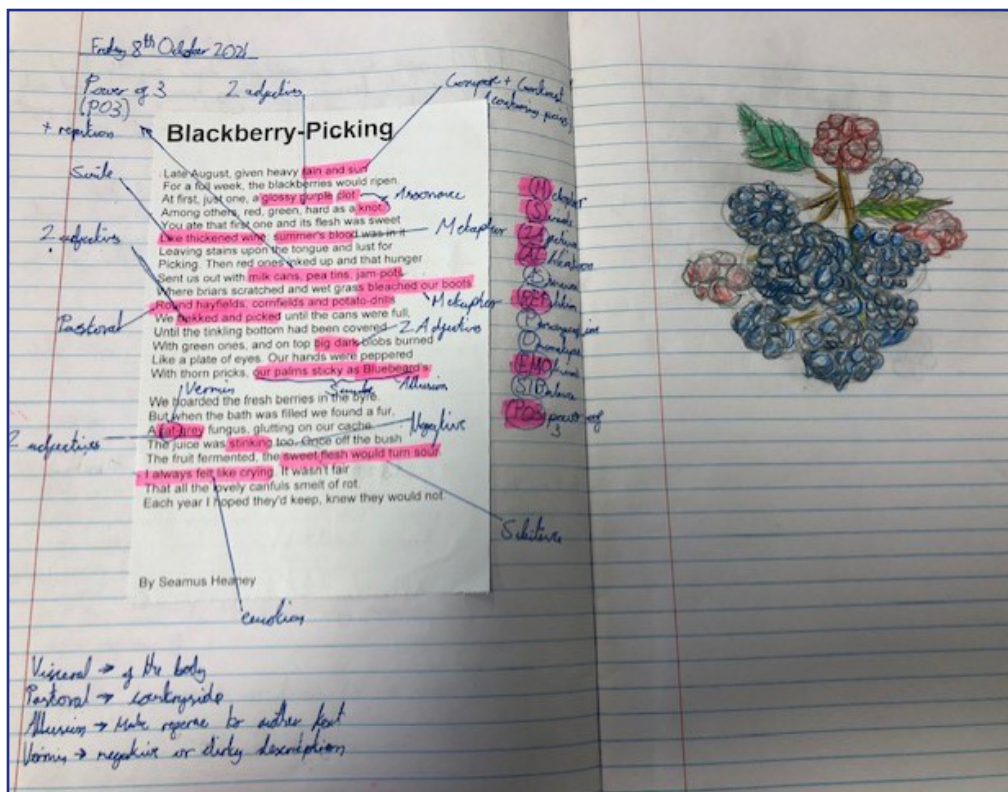 Friday 8th October 2021
Power of 3
(PO3)
2 adjectives
Compare + Contrast
Simile
2 adjectives
Pastoral
Blackberry-Picking
Late August, given heavy rain and sun
For a full week, the blackberries would ripen.
At first, just one, a glossy purple clot
Among others, red, green, hard as a knot.
You ate that first one and its flesh was sweet
Like thickened wine: summer's blood was in it
Leaving stains upon the tongue and lust for
Picking. Then red ones inked up and that hunger
Sent us out with milk cans, pea tins, jam-pots
Where briars scratched and wet grass bleached our boots.
Round hayfields, cornfields and potato-drills
We trekked and picked until the cans were full,
Until the tinkling bottom had been covered
With green ones, and on top big dark blobs burned
Like a plate of eyes. Our hands were peppered
With thorn pricks, our palms sticky as Bluebeard's.
We hoarded the fresh berries in the byre.
But when the bath was filled we found a fur,
A rat-grey fungus, glutting on our cache.
The juice was stinking too. Once off the bush
The fruit fermented, the sweet flesh would turn sour.
I always felt like crying. It wasn't fair
That all the lovely canfuls smelt of rot.
Each year I hoped they'd keep, knew they would not.
By Seamus Heaney
Assonance
Metaphor
Metaphor
2 Adjective
Vermin
Simile
Allusion
Negative
2 adjectives
emotion
PO3 power of
3
Visceral → of the body
Pastoral → countryside
Allusion → Make
Vermin → negative or dirty description